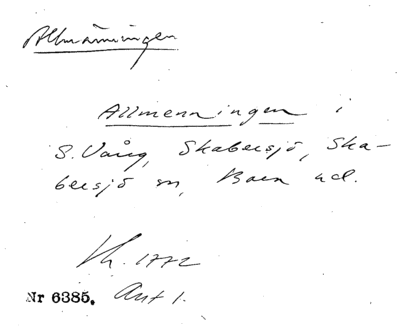 Allmänningen
Allmenningen i
S. Vång, Skabersjö, Ska-
bersjö sn, Bara hd.
Kh. 1772
Nr 6385. Akt 1.